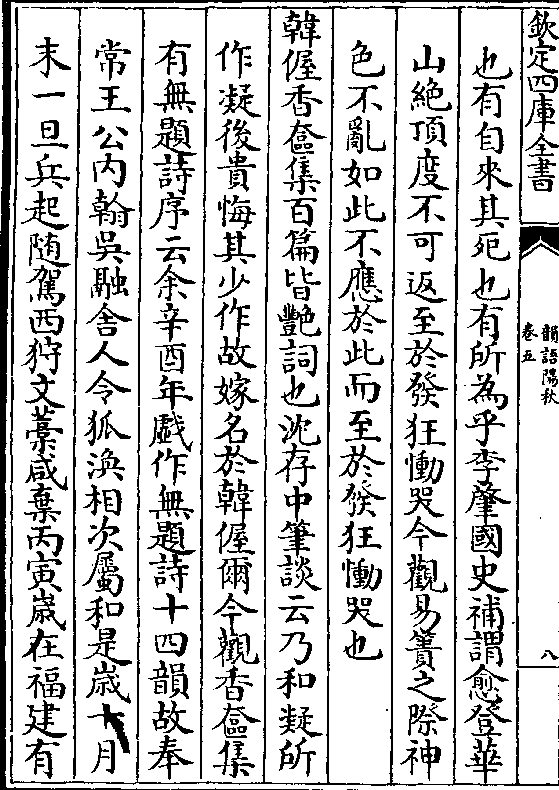 欽定四庫全書
韻語陽秋
卷五
八
也有自來其死也有所為乎李肇國史補謂愈登華
山絶頂度不可返至於發狂慟哭今觀易簀之際神
色不亂如此不應於此而至於發狂慟哭也
韓偓香奩集百篇皆艷詞也沈存中筆談云乃和凝所
作凝後貴悔其少作故嫁名於韓偓爾今觀香奩集
有無題詩序云余辛酉年戲作無題詩十四韻故奉
常王公内翰吳融舍人令狐渙相次屬和是歲十月
末一旦兵起隨駕西狩文藁咸棄丙寅歲在福建有